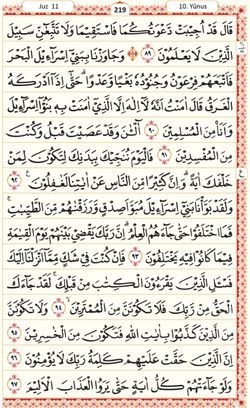 Juz 11
219
10. Yûnus
قَالَ قَدْ اُجِيبَتْ دَعْوَتُكُمَا فَاسْتَقِيمَا وَلَا تَتَّبِعَٓانِّ سَبِيلَ
الَّذِينَ لَا يَعْلَمُونَ ٨٩ وَجَاوَزْنَا بِبَنِٓي اِسْرَٓائِلَ الْبَحْرَ
فَاَتْبَعَهُمْ فِرْعَوْنُ وَجُنُودُهُ بَغْيًا وَعَدْوًا حَتّٰٓى اِذَٓا اَدْرَكَهُ
الْغَرَقُ قَالَ اٰمَنْتُ اَنَّهُ لَٓا اِلٰهَ اِلَّا الَّذِٓي اٰمَنَتْ بِهِ بَنُٓوا اِسْرَٓائِلَ
وَاَنَا مِنَ الْمُسْلِمِينَ ٩٠ آٰلْـٰٔنَ وَقَدْ عَصَيْتَ قَبْلُ وَكُنْتَ
مِنَ الْمُفْسِدِينَ ٩١ فَالْيَوْمَ نُنَجِّيكَ بِبَدَنِكَ لِتَكُونَ لِمَنْ
خَلْفَكَ اٰيَةً وَاِنَّ كَثِيرًا مِنَ النَّاسِ عَنْ اٰيَاتِنَا لَغَافِلُونَ ٩٢
وَلَقَدْ بَوَّأْنَا بَنِٓي اِسْرَٓائِلَ مُبَوَّاَ صِدْقٍ وَرَزَقْنَاهُمْ مِنَ الطَّيِّبَاتِ
فَمَا اخْتَلَفُوا حَتّٰى جَٓاءَهُمُ الْعِلْمُ اِنَّ رَبَّكَ يَقْضِي بَيْنَهُمْ يَوْمَ الْقِيٰمَةِ
فِيمَا كَانُوا فِيهِ يَخْتَلِفُونَ ٩٣ فَاِنْ كُنْتَ فِي شَكٍّ مِمَّٓا اَنْزَلْنَٓا اِلَيْكَ
فَسْـَٔلِ الَّذِينَ يَقْرَؤُنَ الْكِتَابَ مِنْ قَبْلِكَ لَقَدْ جَٓاءَكَ
الْحَقُّ مِنْ رَبِّكَ فَلَا تَكُونَنَّ مِنَ الْمُمْتَرِينَ ٩٤ وَلَا تَكُونَنَّ
مِنَ الَّذِينَ كَذَّبُوا بِاٰيَاتِ اللّٰهِ فَتَكُونَ مِنَ الْخَاسِرِينَ ٩٥
اِنَّ الَّذِينَ حَقَّتْ عَلَيْهِمْ كَلِمَتُ رَبِّكَ لَا يُؤْمِنُونَ ٩٦
وَلَوْ جَٓاءَتْهُمْ كُلُّ اٰيَةٍ حَتّٰى يَرَوُا الْعَذَابَ الْاَلِيمَ ٩٧